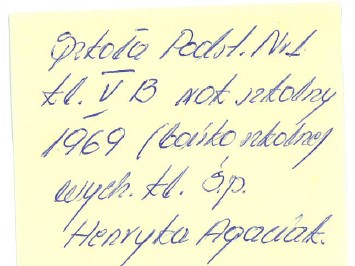 Szkoła Podst. Nr 1
kl. V B rok szkolny
1969 (boisko szkolne)
wych. kl. Ś.p.
Henryka Agaciak.